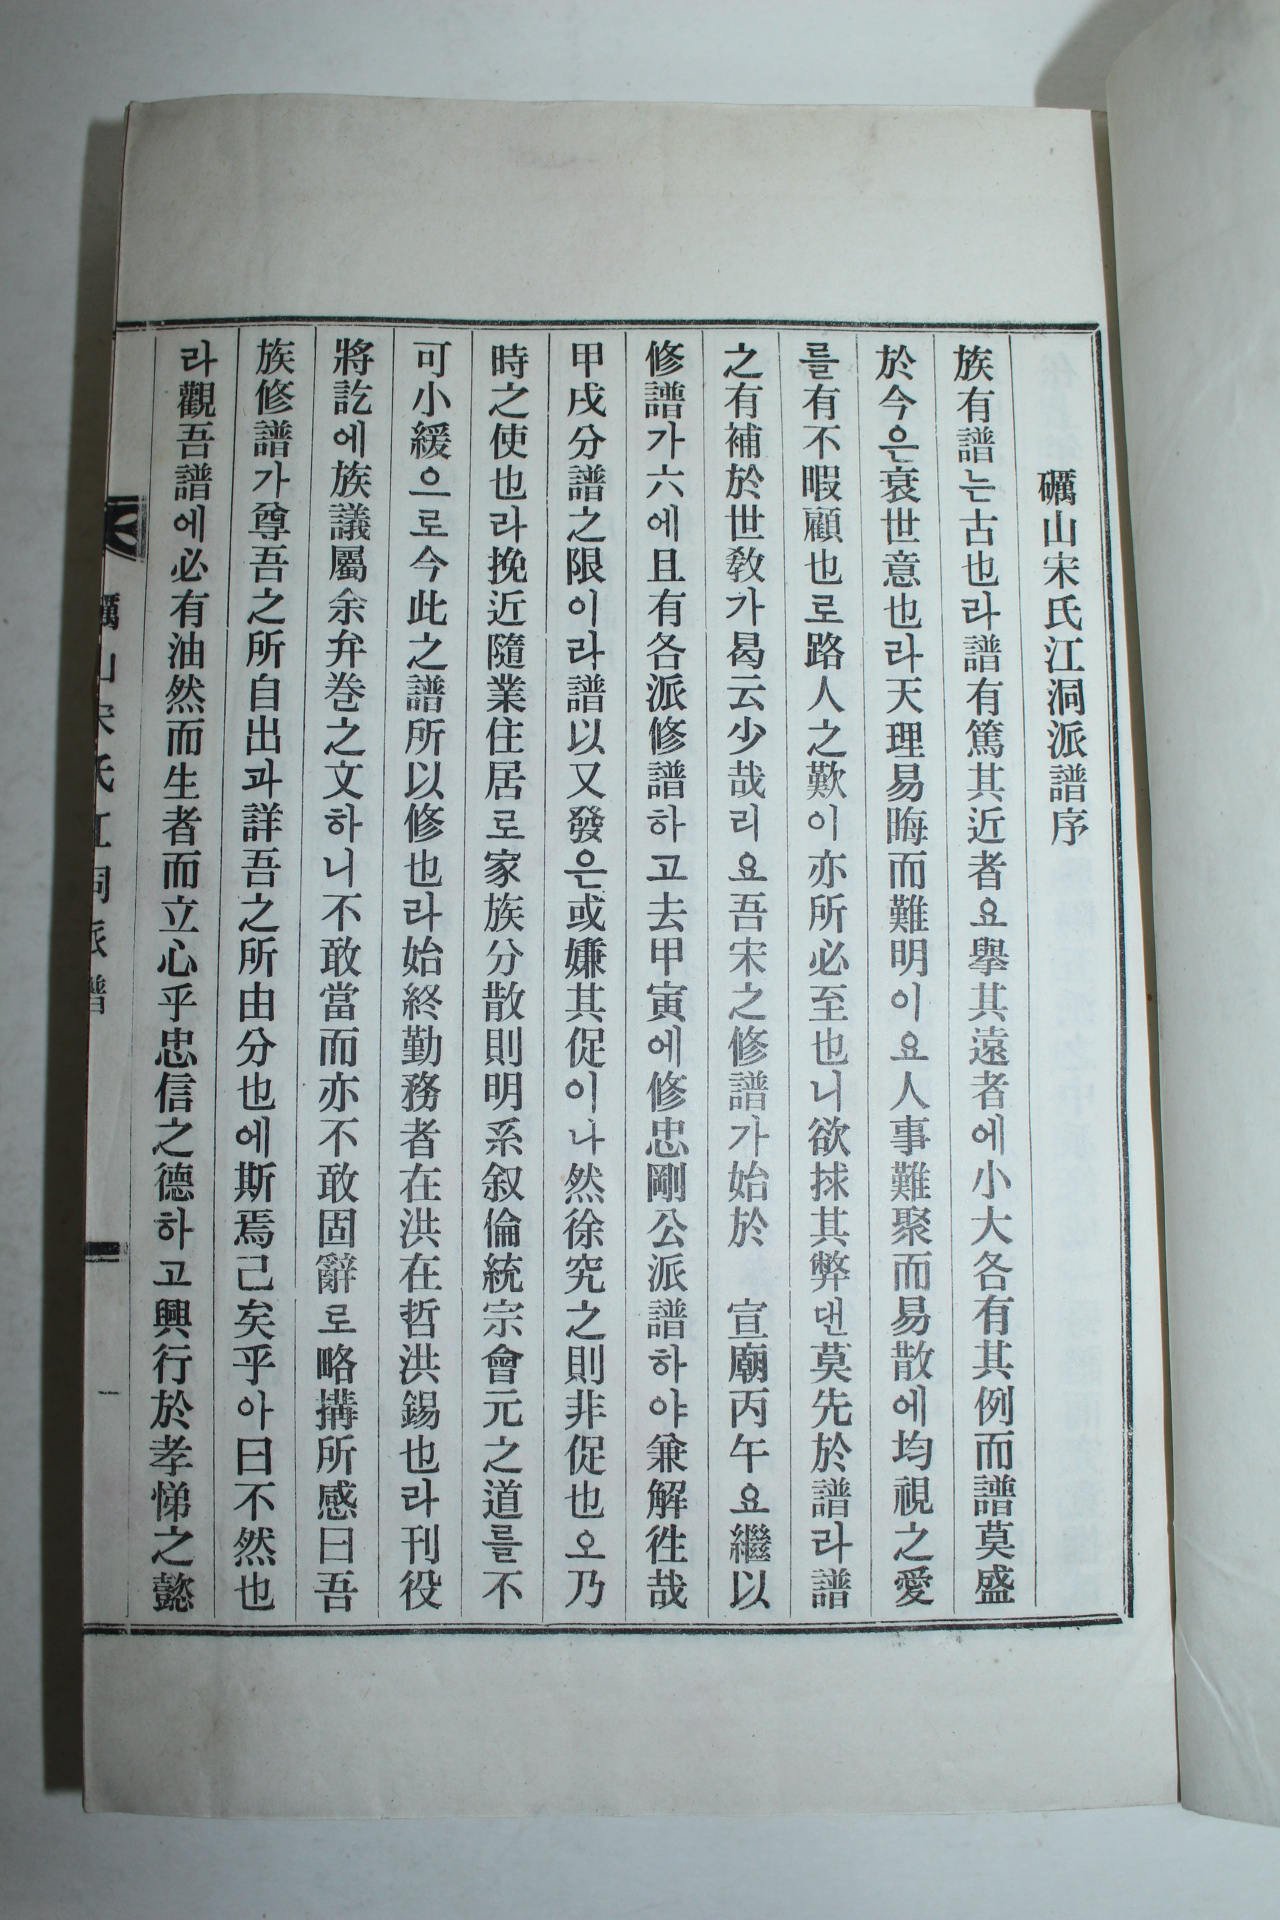 礪山宋氏江洞派譜序
族有譜는古也라譜有篤其近者요擧其遠者에小大各有其例而譜莫盛
於今은衰世意也라天理易晦而難明이요人事難聚而易散에均視之愛
를有不暇顧也로路人之歎이亦所必至也니欲捄其弊댄莫先於譜라譜
之有補於世敎가曷云少哉리요吾宋之修譜가始於 宣廟丙午요繼以
修譜가六에且有各派修譜하고去甲寅에修忠剛公派譜하야兼解徃哉
甲戌分譜之限이라譜以又發은或嫌其促이나然徐究之則非促也오乃
時之使也라挽近隨業住居로家族分散則明系叙倫統宗會元之道를不
可小緩으로今此之譜所以修也라始終勤務者在洪在哲洪錫也라刊役
將訖에族議屬余弁巻之文하니不敢當而亦不敢固辭로略搆所感曰吾
族修譜가尊吾之所自出과詳吾之所由分也에斯焉己矣乎아曰不然也
라觀吾譜에必有油然而生者而立心乎忠信之德하고興行於孝悌之懿
礪山宋氏江洞派譜
一